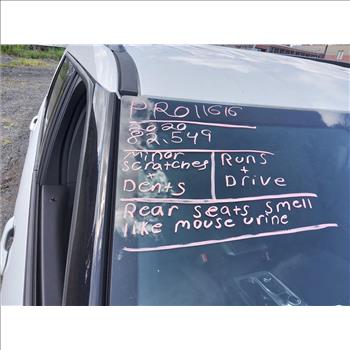 PRO11616
2020
82,549
Minor
scratches
+
Dents
Runs
+
Drive
Rear seats smell
like mouse urine